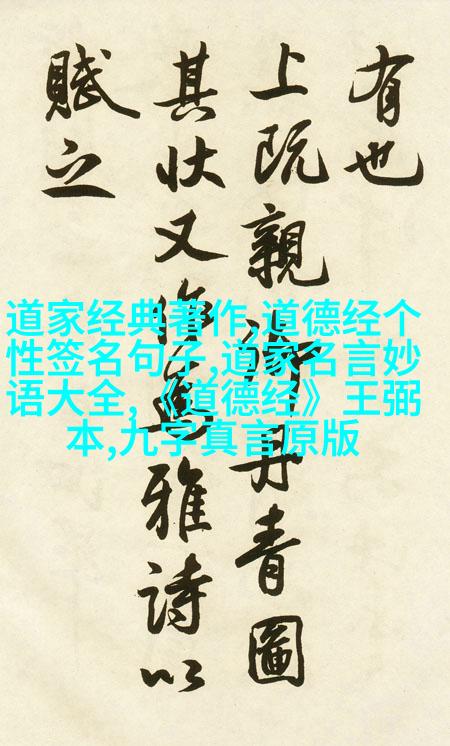 有也
上既親丹青圖
其状又作為雅詩以
賦之
道家经典著作,道德经个
性签名句子,道家名言妙
语大全,《道德经》 王弼
本,九字真言原版